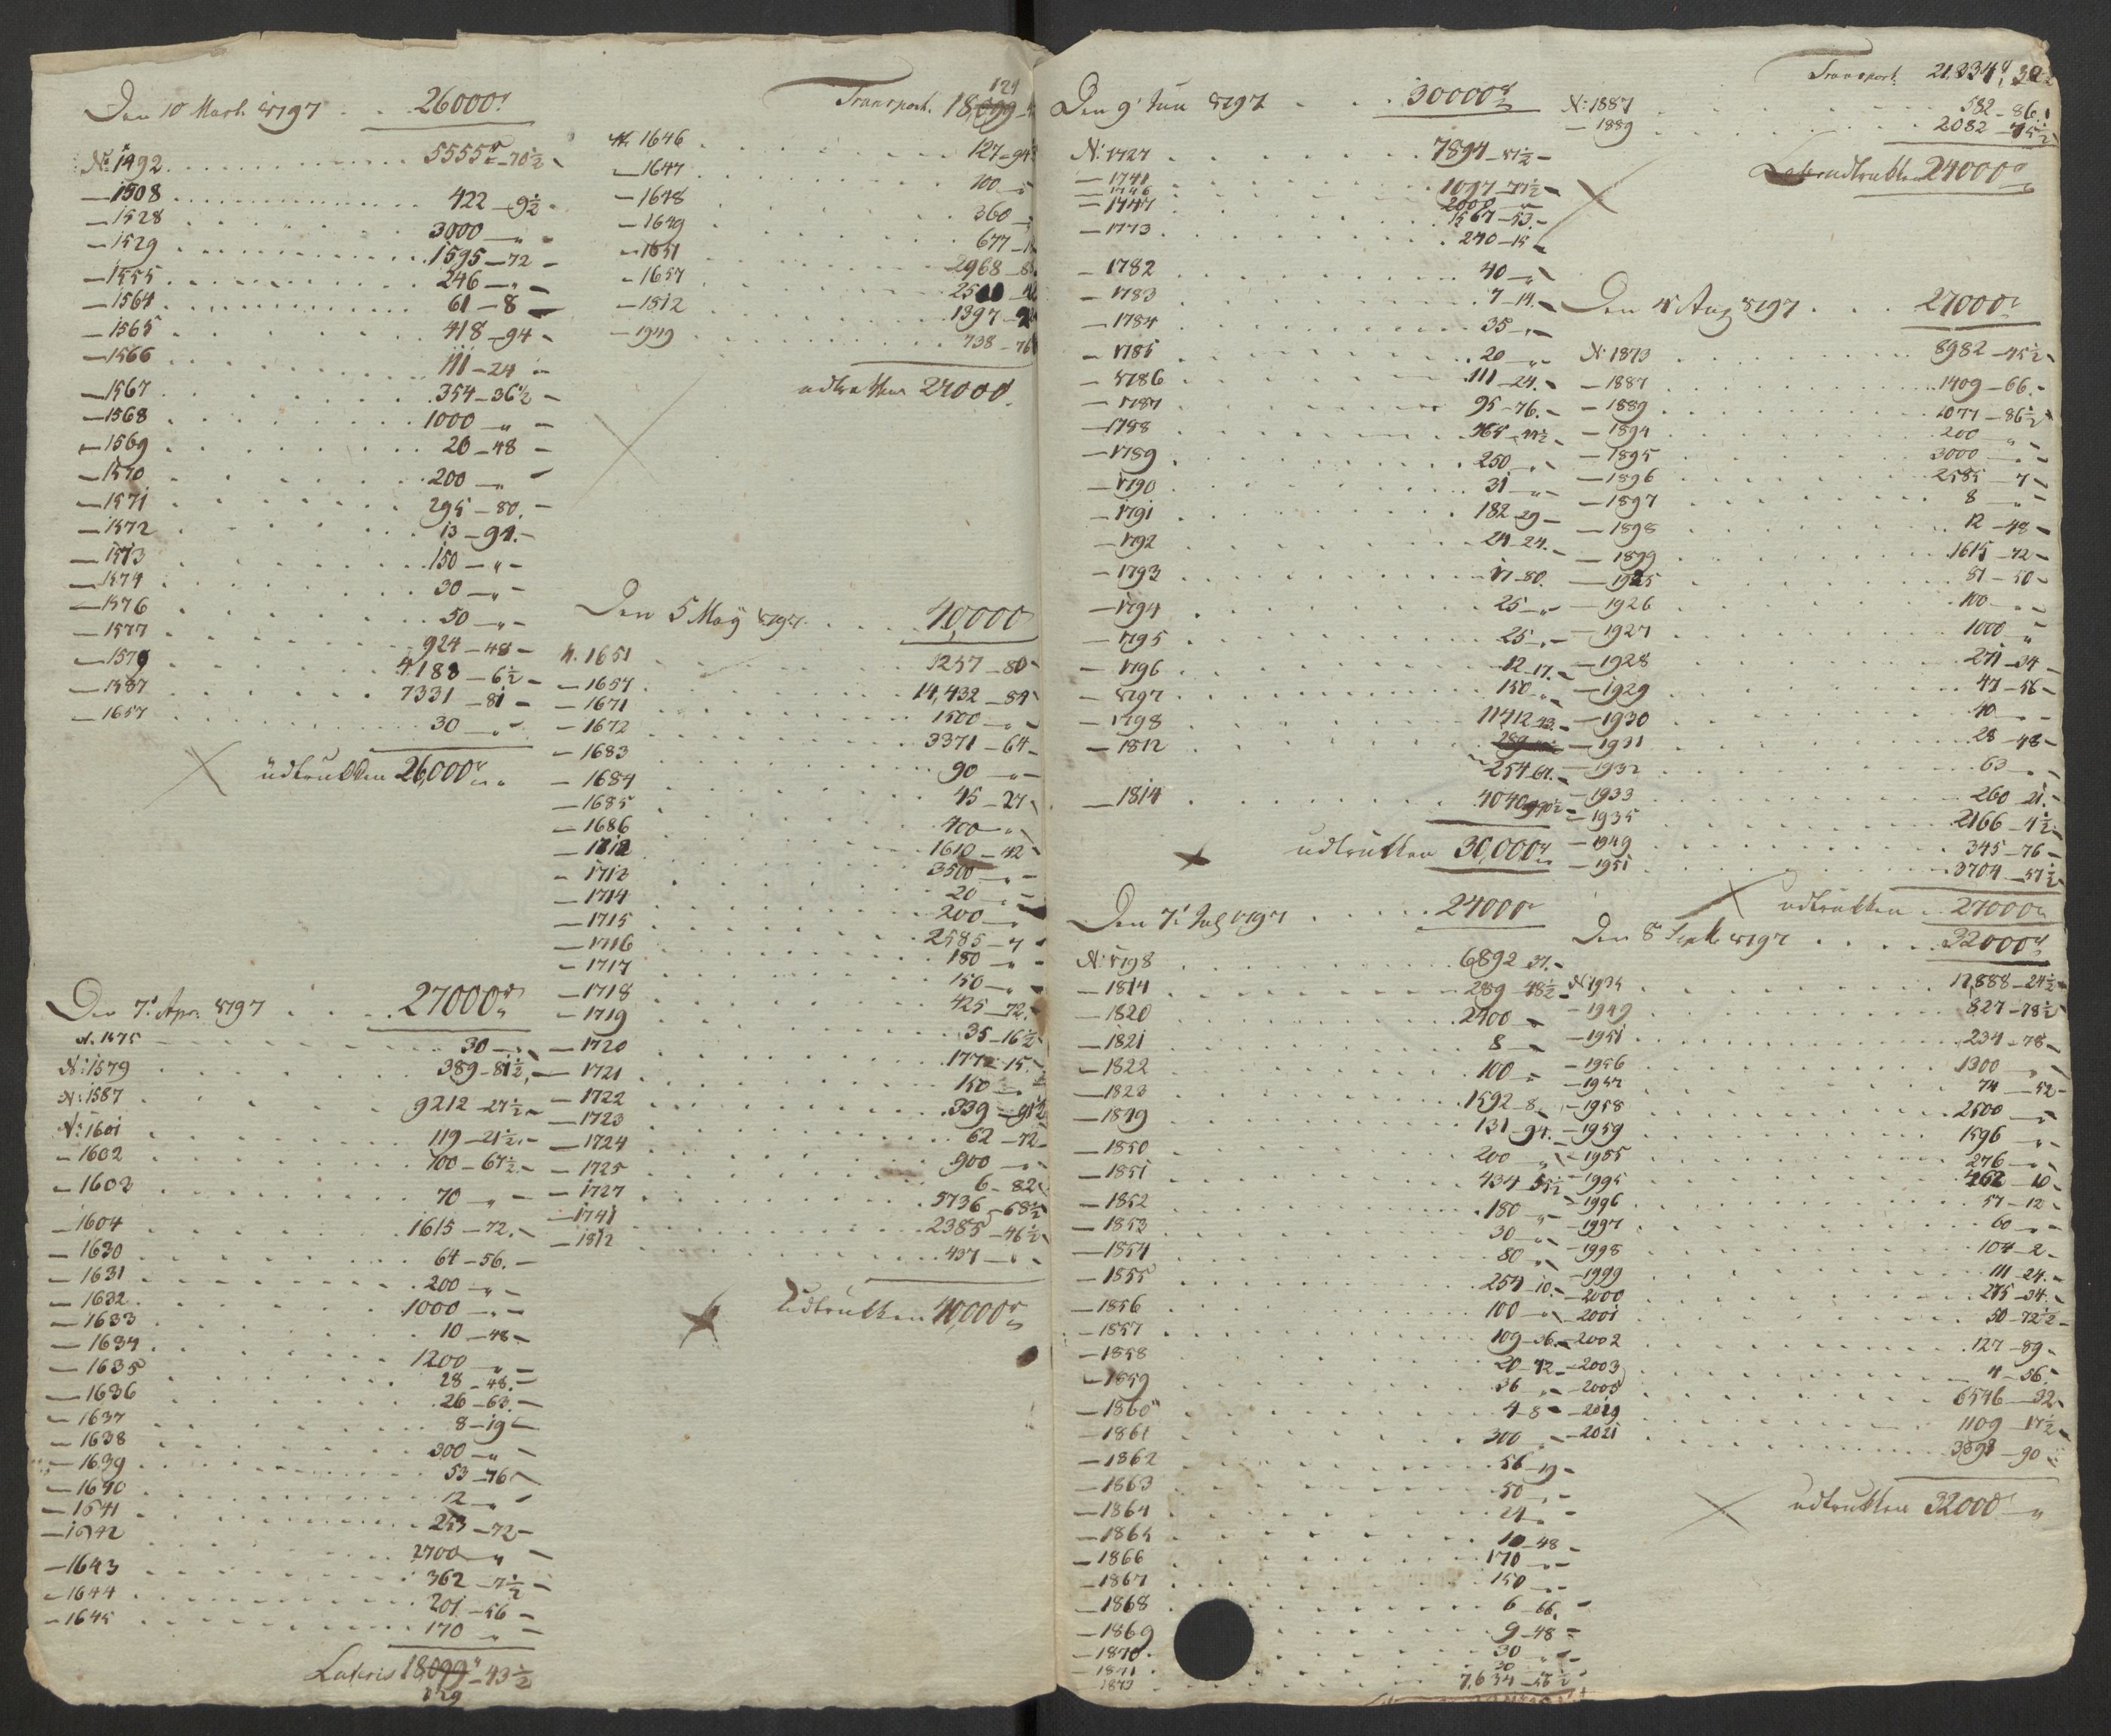 Den 10 Mart. 1797 . . 26000 r
N: 1492 . . . 5555 r - 70½ -
- 1508 . . . 422 - 9½ -
- 1528 . . . 3000 - " -
- 1529 . . . 1595 - 72 -
- 1555 . . . 246 - " -
- 1564 . . . 61 - 8 -
- 1565 . . . 418 - 94 -
- 1566 . . . 111 - 24 -
- 1567 . . . 354 - 36½ -
- 1568 . . . 1000 - " -
- 1569 . . . 20 - 48 -
- 1570 . . . 200 - "
- 1571 . . . 295 - 80. -
- 1572 . . . 13 - 94. -
- 1573 . . . 150 - " -
- 1574 . . . 30 - " -
- 1576 . . . 50 - " -
- 1577 . . . 924 - 48 -
- 1579 . . . 4188 - 6½ -
- 1587 . . . 7331 - 81 -
- 1657 . . . 30 - " -
udtrukken 26,000 r " "
Den 7' Apr. 1797 . . . 27000 r "
N. 1575 . . . 30 - " -
N: 1579 . . . 389 - 81½ -
N: 1587 . . . 9212 - 27½ -
N: 1601 . . . 119 - 21½ -
- 1602 . . . 700 - 67½ -
- 1603 . . . 70 - " -
- 1604 . . . 1615 - 72. -
- 1630 . . . 64 - 56. -
- 1631 . . . 200 - " -
- 1632 . . . 1000 - " -
- 1633 . . . 10 - 48 -
- 1634 . . . 1200 - " -
- 1635 . . . 28 - 48. -
- 1636 . . . 26 - 63. -
- 1637 . . . 8 - 19 -
- 1638 . . . 300 - " -
- 1639 . . . 53 - 76 -
- 1640 . . . 12 - "
- 1641 . . . 253 - 72 -
- 1642 . . . 2700 - " -
- 1643 . . . 362 - 7½ -
- 1644 . . . 201 - 56 -
- 1645 . . . 170 - " -
Lateris 18099 r - 43½
129
129
Transport. 18,099
N. 1646 . . . 127 - 94
- 1647 . . . 100 -
- 1648 . . . 360 -
- 1649 . . . 677 -
- 1651 . . . 2968 - 8
- 1657 . . . 2500
- 1812 . . . 1397 -
- 1949 . . . 738 - 76
udtrukken 27000.
Den 5 May 1797 . . . 40,000
N. 1651 . . . 1257 - 80 -
- 1657 . . . 14,432 - 84
- 1671 . . . 1500 - " -
- 1672 . . . 3371 - 64 -
- 1683 . . . 90 - " -
- 1684 . . . 45 - 27
- 1685 . . . 400 - "
- 1686 . . . 1610 - 42 -
- 1712 . . . 3500 - " -
- 1713 . . . 20 - " -
- 1714 . . . 200 - "
- 1715 . . . 2585 - 7 -
- 1716 . . . 180 - " -
- 1717 . . . 150 - "
- 1718 . . . 425 - 72.
- 1719 . . . 35 - 16½
- 1720 . . . 177 - 15.
- 1721 . . . 150 - "
- 1722 . . . 339 - 91½
- 1723 . . . 62 - 72 -
- 1724 . . . 900 - " -
- 1725 . . . 6 - 82
- 1727 . . . 5736 - 68½
- 1741 . . . 2385 - 46½
- 1812 . . . 437 - " -
Udtrukken 40,000 r "
Den 9' Jun 1797 . . . 30000 r
N: 1727 . . . 7894 - 51½ -
- 1741 . . . 1077 - 77½ -
- 1746 . . . 2000 - "
- 1747 . . . 1567 - 53. -
- 1773 . . . 270 - 15 -
- 1782 . . . 40 - "
- 1783 . . . 7 - 14. -
- 1784 . . . 35 - " -
- 1785 . . . 20 - "
- 1786 . . . 111 - 24. -
- 1787 . . . 95 - 76. -
- 1788 . . . 765 - 44½ -
- 1789 . . . 250 - "
- 1790 . . . 31 - " -
- 1791 . . . 182 - 29 -
- 1792 . . . 24 - 24. -
- 1793 . . . 17 - 80.
- 1794 . . . 25 - "
- 1795 . . . 25 - " -
- 1796 . . . 12 - 17. -
- 1797 . . . 150 - "
- 1798 . . . 11412 - 23. -
- 1812 . . . 254 - 61. -
- 1814 . . . 4040 - 90½ -
udtrukken 30,000 r "
Den 7' Jul 1797 . . . 24000 r
N: 1798 . . . 6892 - 37. -
- 1814 . . . 289 - 48½ -
- 1820 . . . 2400 - "
- 1821 . . . 8 - "
- 1822 . . . 100 - "
- 1823 . . . 1592 - 8
- 1849 . . . 131 - 94. -
- 1850 . . . 200 - "
- 1851 . . . 434 - 55½
- 1852 . . . 180 - " -
- 1853 . . . 30 - " -
- 1854 . . . 80 - "
- 1855 . . . 254 - 10. -
- 1856 . . . 100 - "
- 1857 . . . 109 - 36. -
- 1858 . . . 20 - 72
- 1859 . . . 36 - " -
- 1860 . . . 4 - 8 -
- 1861 . . . 300 - " -
- 1862 . . . 56 - 19 -
- 1863 . . . 50 - " -
- 1864 . . . 24 - " -
- 1865 . . . 10 - 48 -
- 1866 . . . 170 - " -
- 1867 . . . 150 - " -
- 1868 . . . 6 - 66. -
- 1869 . . . 9 - 48 -
- 1870 . . . 30 - " -
- 1871 . . . 30 - "
- 1873 . . . 7,634 - 56½
Transport. 21,334 r, 30½
N: 1887 . . . 582 - 86.
- 1889 . . . 2082 - 75½
udtrukken 24000 r "
Den 4' Aug 1797 . . . 27000 r
N: 1873 . . . 8982 - 45½ -
- 1887 . . . 1409 - 66. -
- 1889 . . . 1077 - 86½ -
- 1894 . . . 200 - " -
- 1895 . . . 3000 - " -
- 1896 . . . 2585 - 7 -
- 1897 . . . 8 - " -
- 1898 . . . 12 - 48 -
- 1899 . . . 1615 - 72 -
- 1925 . . . 51 - 50 -
- 1926 . . . 100 - " -
- 1927 . . . 1000 - "
- 1928 . . . 271 - 34 -
- 1929 . . . 47 - 56 -
- 1930 . . . 40 - " -
- 1931 . . . 28 - 48 -
- 1932 . . . 63 - " -
- 1933 . . . 260 - 21. -
- 1935 . . . 2166 - 4½ -
- 1949 . . . 345 - 76 -
- 1951 . . . 3704 - 57½
udtrukken . 27000 r "
Den 8' Sept. 1797 . . . 32000 r
N: 1935 . . . 12,888 - 24½ -
- 1949 . . . 827 - 78½
- 1951 . . . 234 - 78 -
- 1956 . . . 1300 - "
- 1957 . . . 74 - 52 -
- 1958 . . . 2500 - "
- 1959 . . . 1596 - " -
- 1985 . . . 276 - "
- 1995 . . . 462 - 10 -
- 1996 . . . 57 - 12 -
- 1997 . . . 60 - " -
- 1998 . . . 104 - 2 -
- 1999 . . . 111 - 24. -
- 2000 . . . 275 - 34. -
- 2001 . . . 50 - 72½ -
- 2002 . . . 127 - 89 -
- 2003 . . . 4 - 56.
- 2005 . . . 6546 - 32 -
- 2019 . . . 1109 - 17½ -
- 2021 . . . 3393 - 90 -
udtrukken 32000 r "